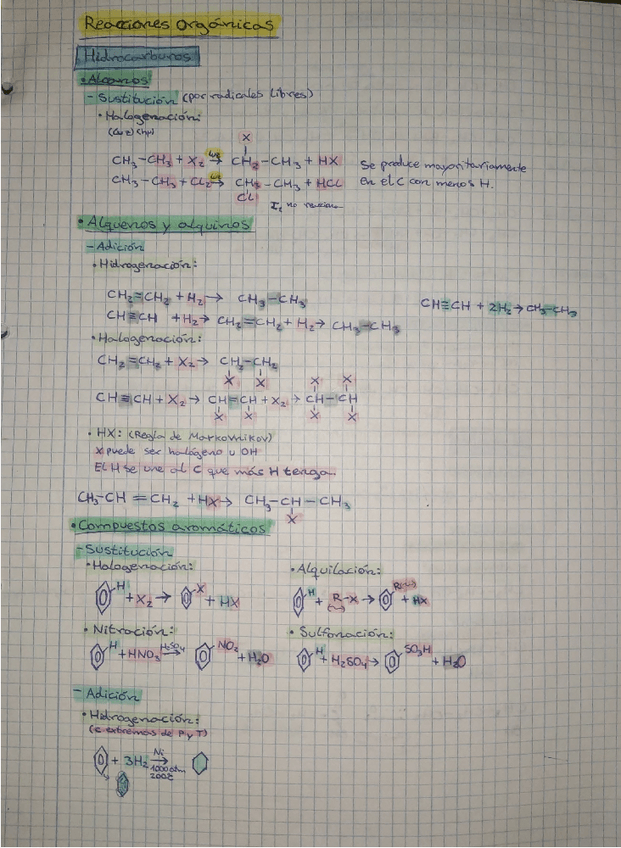 Reacciones orgánicas
Hidrocarburos
• Alcanos
- Sustitución (por radicales libres)
• Halogenación:
CH₃-CH₃ + X₂ → CH₂-CH₃ + HX
X
Se produce mayoritariamente
en el C con menos H.
CH₃-CH₃ + Cl₂ → CH₂-CH₃ + HCl
Cl
I₂ no
• Alquenos y alquinos
- Adición
• Hidrogenación:
CH₂=CH₂ + H₂ → CH₃-CH₃
CH≡CH + 2H₂ → CH₃-CH₃
CH≡CH + H₂ → CH₂=CH₂ + H₂ → CH₃-CH₃
• Halogenación:
CH₂=CH₂ + X₂ → CH₂-CH₂
X X
X X
CH≡CH + X₂ → CH=CH + X₂ → CH-CH
X X X X
• HX: (Regla de Markovnikov)
X puede ser halógeno u OH
El H se une al C que más H tenga
CH₃-CH=CH₂ + HX → CH₃-CH-CH₃
X
• Compuestos aromáticos
- Sustitución
• Halogenación:
H + X₂ → X + HX
• Alquilación:
H + R-X → R + HX
• Nitración:
H + HNO₃ H₂SO₄ → NO₂ + H₂O
• Sulfonación:
H + H₂SO₄ → SO₃H + H₂O
- Adición
• Hidrogenación:
(c. extremas de P y T)
+ 3H₂ Ni →
1000 atm
200ºC